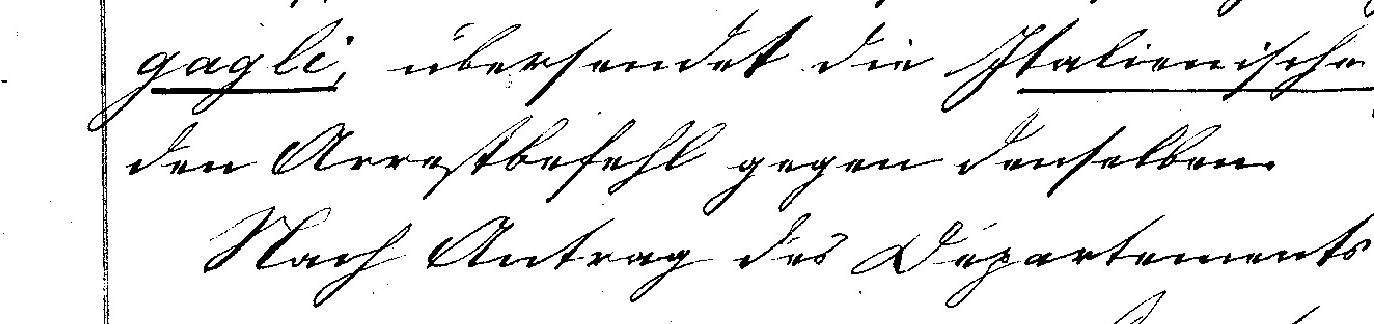 gagli, übersendet die Italienische
den Arrestbefehl gegen denselben.
Nach Antrag des Departements